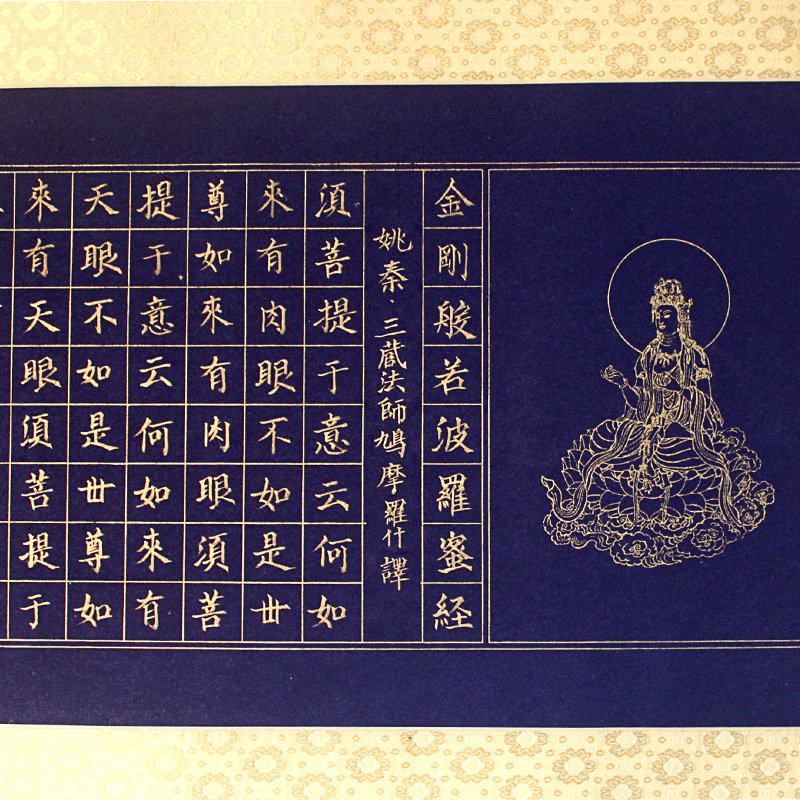 金剛般若波羅蜜経
姚秦·三蔵法師鳩摩羅什譯
須菩提于意云何如
來有肉眼不如是丗
尊如來有肉眼須菩
提于意云何如來有
天眼不如是丗尊如
來有天眼須菩提于